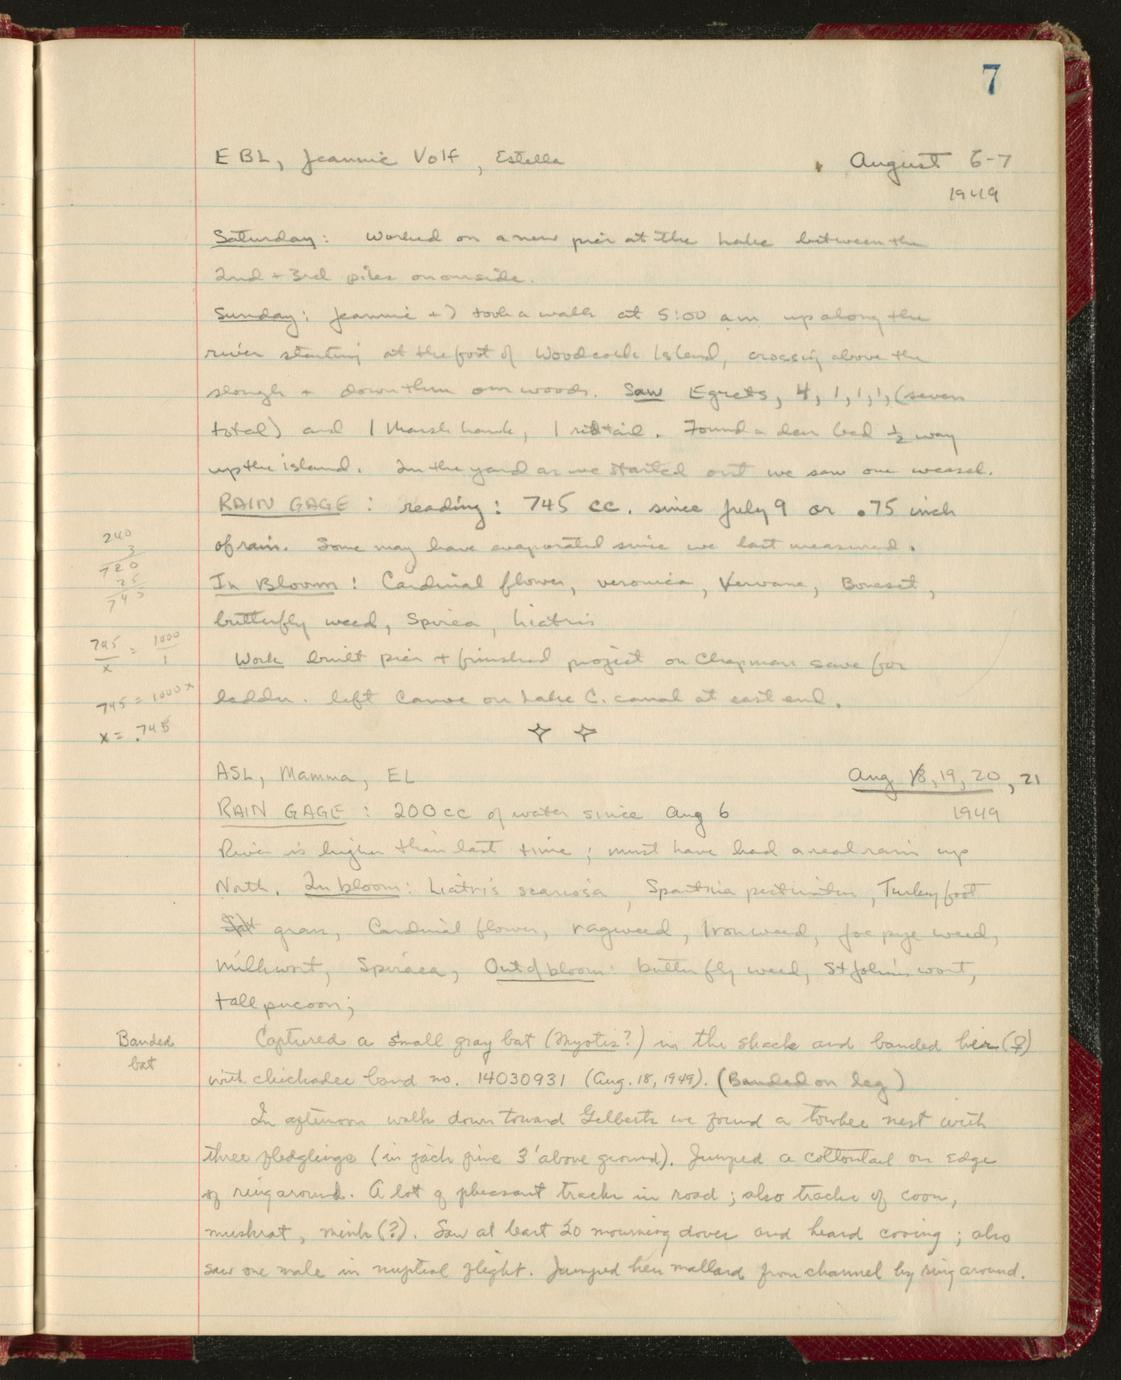 7
EBL, Jeannie Volf, Estella August 6-7
1949
Saturday: Worked on a new pier at the Lake between the
2nd + 3rd piles on one side.
Sunday: Jeannie + I took a walk at 5:00 am up along the
river starting at the foot of Woodcock Island, crossing above the
slough + down thru our woods. Saw Egrets, 4, 1, 1, 1, (seven
total) and 1 Marsh hawk, 1 redtail. Found a deer bed ½ way
up the island. In the yard as we started out we saw one weasel.
RAIN GAGE: reading: 745 cc. since July 9 or .75 inch
of rain. Some may have evaporated since we last measured.
240
3
720
25
745
In Bloom: Cardinal flower, veronica, Vervane, Boneset,
butterfly weed, Spirea, Liatris
745/x = 1000/1
Work built pier + finished project on Chapman save for
ladder. left Canoe on Lake C. canal at east end.
745 = 1000x
x = .745
ASL, Mamma, EL Aug 18, 19, 20, 21
RAIN GAGE: 200 cc of water since Aug 6 1949
River is higher than last time; must have had a real rain up
North. In bloom: Liatris scariosa, Spartina pectinata, Turkeyfoot
grass, Cardinal flower, ragweed, Ironweed, Joe pye weed,
Milkwort, Spiraea, Out of bloom: butterfly weed, St John's wort,
tall pucoon;
Banded
bat
Captured a small gray bat (Myotis?) in the shack and banded her (♀)
with chickadee band no. 14030931 (Aug. 18, 1949). (Banded on leg)
In afternoon walk down toward Gilberts we found a towhee nest with
three fledglings (in jack pine 3' above ground). Jumped a cottontail on edge
of ringaround. A lot of pheasant tracks in road; also tracks of coon,
muskrat, mink (?). Saw at least 20 mourning doves and heard cooing; also
saw one male in nuptial flight. Jumped hen mallard from channel by ringaround.